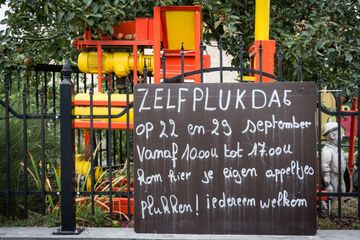 ZELFPLUKDAG
op 22 en 29 september
Vanaf 10.00u tot 17.00u
Kom hier je eigen appeltjes
plukken! iedereen welkom